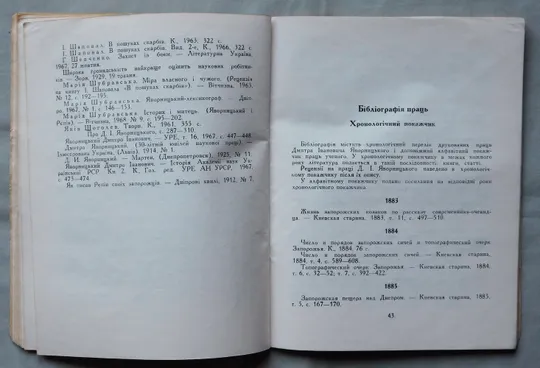 І. Шаповал. В пошуках скарбів. К., 1963. 322 с.
І. Шаповал. В пошуках скарбів. Вид. 2-е, К., 1966. 322 с.
Літературна Україна
1967, 27 жовтня.
Широка громадськість найкраще оцінить наукових робітників
— Зоря, 1929, 19 травня.
Марія Шубравська. Міра власного і чужого. (Рецензія
на книгу І. Шаповала «В пошуках скарбів»). — Вітчизна, 1963,
№ 12, с. 192—195.
Марія Шубравська. Яворницький-лексикограф
1967, № 1, с. 146—153.
Марія Шубравська. Історик і митець. (Яворницький і
Рєпін). — Вітчизна, 1968, № 9, с. 195—202.
Яків Щоголев. Твори. К., 1961, 355 с.
Про Д. І. Яворницького, с. 287—310.
Яворницький Дмитро Іванович. — УРЕ, т. 16, 1967, с. 447—448.
Яворницький Дмитро (30-літній ювілей наукової праці). —
Ілюстрована Україна. (Львів). 1914, № 1.
Д. И. Яворницкий. — Мартен, (Дніпропетровськ), 1925, № 11.
Яворницький Дмитро Іванович. — Історія Академії наук Української
РСР. Кн. 2. К., Гол. ред. УРЕ АН УРСР, 1967,
с. 473—474.
Як писав Репін своїх запорожців. — Дніпрові хвилі, 1912, № 7.
Бібліографія праць
Хронологічний покажчик
Бібліографія містить хронологічний перелік друкованих праць
Дмитра Івановича Яворницького і допоміжний алфавітний покажчик
праць ученого. У хронологічному покажчику в межах кожного
року література подається в такій послідовності: книги, статті.
Рецензії на праці Д. І. Яворницького наведено в хронологічному
покажчику після їх опису.
У алфавітному покажчику подано посилання на відповідні роки
хронологічного покажчика.
1883
Жизнь запорожских козаков по рассказу современника-очевидца.
— Киевская старина, 1883, т. 11, с. 497—510.
1884
Число и порядок запорожских сичей с топографический очерк
Запорожья. К., 1884, 76 с.
Число и порядок запорожских сичей. — Киевская старина,
1884, т. 4, с. 589—608.
Топографический очерк Запорожья. — Киевская старина, 1884,
т. 6, с. 32—52, т. 7, с. 392—422.
1885
Запорожская пещера над Днепром. — Киевская старина, 1885,
т. 5, с. 167—170.
43